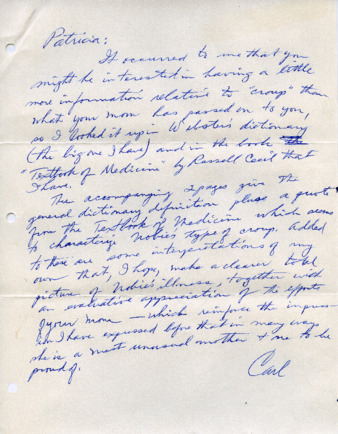 Patricia:
It occurred to me that you
might be interested in having a little
more information relative to "croup" than
what your mom has passed on to you,
so I looked it up in Webster's dictionary
(the big one I have) and in the book
"Textbook of Medicine" by Russell Cecil that
I have.
The accompanying 2 pages give the
general dictionary definition plus a quote
from the Textbook of Medicine which seems
to characterize Nobie's type of croup. Added
to these are some interpretations of my
own that, I hope, make a clearer total
picture of Nobie's illness, together with
an evaluative appreciation of the efforts
of your mom — which reinforce the impres-
sion I have expressed before that in many ways
she is a most unusual mother & one to be
proud of.
Carl